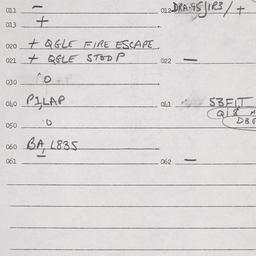 011 — 012 DRA.95/1R3/+
013 +
020 + QGLE FIRE ESCAPE
021 + QGLE STOOP 022 —
030 0
040 P1,LAP 041 S3FIT
Q18
050 0 D3
060 BA, L835
061 — 062 —